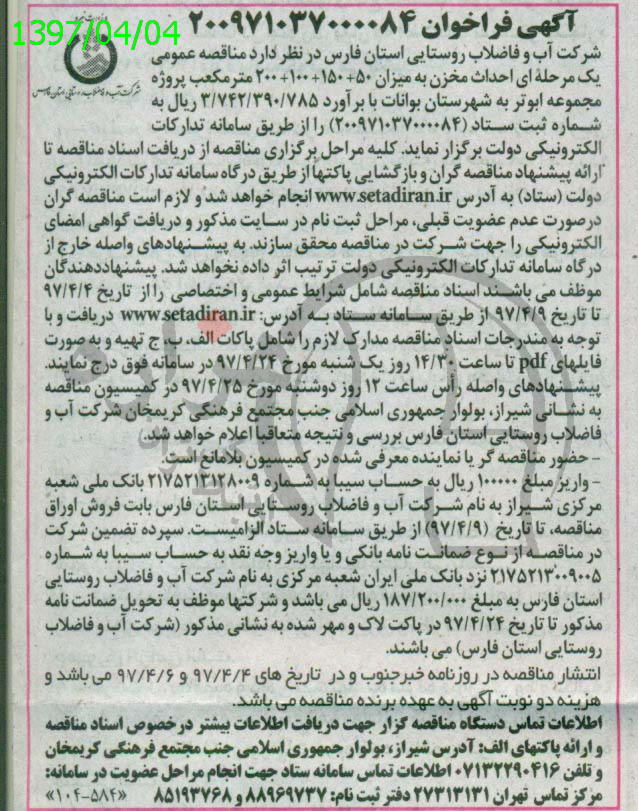 1397/04/04
آگهی فراخوان ۲۰۰۹۷۱۰۳۷۰۰۰۰۰۸۴
شرکت آب و فاضلاب روستایی استان فارس
شرکت آب و فاضلاب روستایی استان فارس در نظر دارد مناقصه عمومی
یک مرحله ای احداث مخزن به میزان ۵۰+۱۵۰+۱۰۰+۲۰۰ مترمکعب پروژه
مجموعه ابوتر به شهرستان بوانات با برآورد ۳/۷۴۲/۳۹۰/۷۸۵ ریال به
شماره ثبت ستاد (۲۰۰۹۷۱۰۳۷۰۰۰۰۰۸۴) را از طریق سامانه تدارکات
الکترونیکی دولت برگزار نماید. کلیه مراحل برگزاری مناقصه از دریافت اسناد مناقصه تا
ارائه پیشنهاد مناقصه گران و بازگشایی پاکتها از طریق درگاه سامانه تدارکات الکترونیکی
دولت (ستاد) به آدرس www.setadiran.ir انجام خواهد شد و لازم است مناقصه گران
درصورت عدم عضویت قبلی، مراحل ثبت نام در سایت مذکور و دریافت گواهی امضای
الکترونیکی را جهت شرکت در مناقصه محقق سازند. به پیشنهادهای واصله خارج از
درگاه سامانه تدارکات الکترونیکی دولت ترتیب اثر داده نخواهد شد. پیشنهاددهندگان
موظف می باشند اسناد مناقصه شامل شرایط عمومی و اختصاصی را از تاریخ ۹۷/۴/۴
تا تاریخ ۹۷/۴/۹ از طریق سامانه ستاد به آدرس: www.setadiran.ir دریافت و با
توجه به مندرجات اسناد مناقصه مدارک لازم را شامل پاکات الف، ب، ج تهیه و به صورت
فایلهای pdf تا ساعت ۱۴/۳۰ روز یک شنبه مورخ ۹۷/۴/۲۴ در سامانه فوق درج نمایند.
پیشنهادهای واصله رأس ساعت ۱۲ روز دوشنبه مورخ ۹۷/۴/۲۵ در کمیسیون مناقصه
به نشانی شیراز، بولوار جمهوری اسلامی جنب مجتمع فرهنگی کریمخان شرکت آب و
فاضلاب روستایی استان فارس بررسی و نتیجه متعاقبا اعلام خواهد شد.
- حضور مناقصه گر یا نماینده معرفی شده در کمیسیون بلامانع است.
- واریز مبلغ ۱۰۰۰۰۰ ریال به حساب سیبا به شماره ۲۱۷۵۲۱۳۱۲۸۰۰۹ بانک ملی شعبه
مرکزی شیراز به نام شرکت آب و فاضلاب روستایی استان فارس بابت فروش اوراق
مناقصه، تا تاریخ (۹۷/۴/۹) از طریق سامانه ستاد الزامیست. سپرده تضمین شرکت
در مناقصه از نوع ضمانت نامه بانکی و یا واریز وجه نقد به حساب سیبا به شماره
۲۱۷۵۲۱۳۰۰۹۰۰۵ نزد بانک ملی ایران شعبه مرکزی به نام شرکت آب و فاضلاب روستایی
استان فارس به مبلغ ۱۸۷/۲۰۰/۰۰۰ ریال می باشد و شرکتها موظف به تحویل ضمانت نامه
مذکور تا تاریخ ۹۷/۴/۲۴ در پاکت لاک و مهر شده به نشانی مذکور (شرکت آب و فاضلاب
روستایی استان فارس) می باشند.
انتشار مناقصه در روزنامه خبرجنوب و در تاریخ های ۹۷/۴/۴ و ۹۷/۴/۶ می باشد و
هزینه دو نوبت آگهی به عهده برنده مناقصه می باشد.
اطلاعات تماس دستگاه مناقصه گزار جهت دریافت اطلاعات بیشتر درخصوص اسناد مناقصه
و ارائه پاکتهای الف: آدرس شیراز، بولوار جمهوری اسلامی جنب مجتمع فرهنگی کریمخان
و تلفن ۰۷۱۳۲۲۹۰۴۱۶ اطلاعات تماس سامانه ستاد جهت انجام مراحل عضویت در سامانه:
مرکز تماس تهران ۲۷۳۱۳۱۳۱ دفتر ثبت نام: ۸۸۹۶۹۷۳۷ و ۸۵۱۹۳۷۶۸ «۱۰۴-۵۸۴»